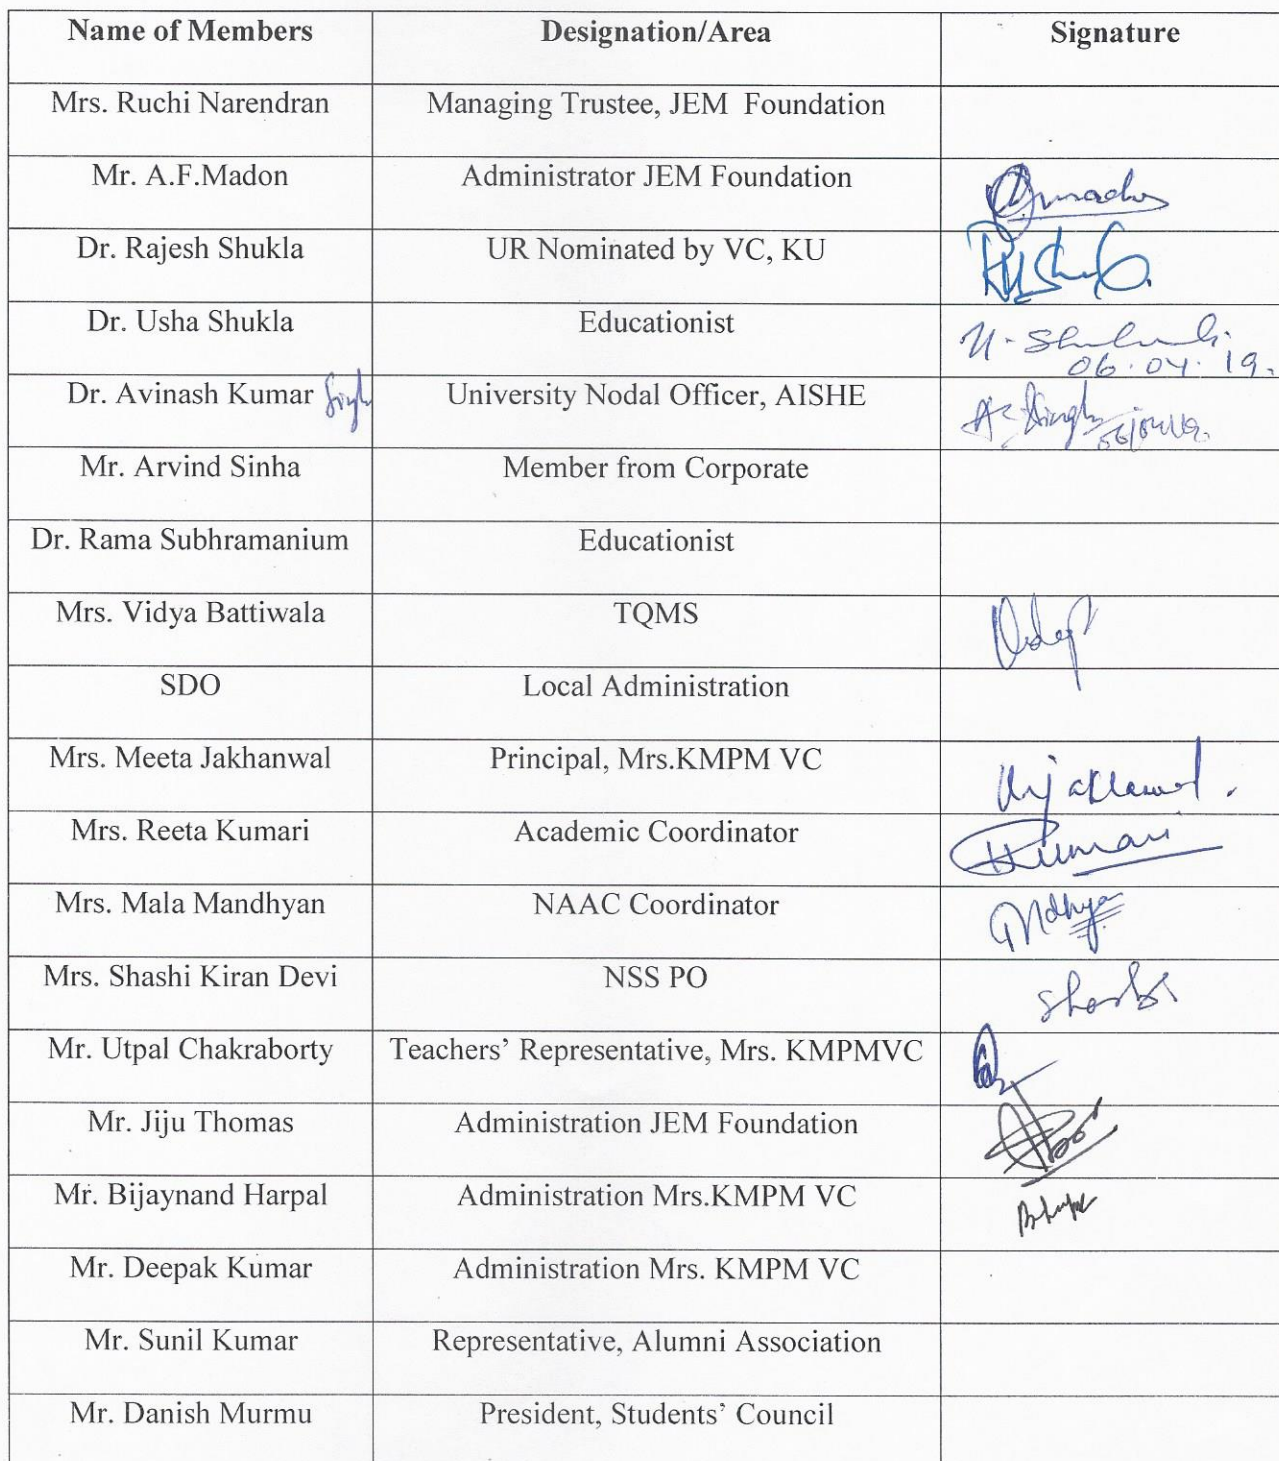 Name of Members Designation/Area Signature
Mrs. Ruchi Narendran Managing Trustee, JEM Foundation
Mr. A.F.Madon Administrator JEM Foundation
Dr. Rajesh Shukla UR Nominated by VC, KU
Dr. Usha Shukla Educationist U. Shukla
06.04.19.
Dr. Avinash Kumar Singh University Nodal Officer, AISHE AK Singh
Mr. Arvind Sinha Member from Corporate
Dr. Rama Subhramanium Educationist
Mrs. Vidya Battiwala TQMS
SDO Local Administration
Mrs. Meeta Jakhanwal Principal, Mrs.KMPM VC
Mrs. Reeta Kumari Academic Coordinator RKumari
Mrs. Mala Mandhyan NAAC Coordinator
Mrs. Shashi Kiran Devi NSS PO
Mr. Utpal Chakraborty Teachers' Representative, Mrs. KMPMVC
Mr. Jiju Thomas Administration JEM Foundation
Mr. Bijaynand Harpal Administration Mrs.KMPM VC
Mr. Deepak Kumar Administration Mrs. KMPM VC
Mr. Sunil Kumar Representative, Alumni Association
Mr. Danish Murmu President, Students' Council